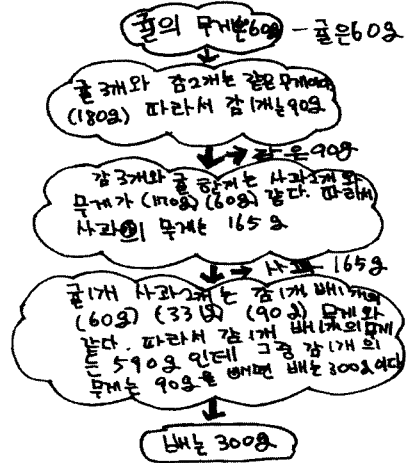 귤의 무게는60g - 귤은60g
귤 3개와 감2개는 같은 무게이다.
(180g) 따라서 감1개는90g
→ 감은90g
감3개와 귤 한개는 사과2개와
무게가 (270g) (60g) 같다. 따라서
사과의 무게는 165g
→ 사과 165g
귤1개 사과2개는 감1개 배1개의
(60g) (33g) (90g) 무게와
같다. 따라서 감1개 배1개의무게
는 590g 인데 그중 감1개의
무게는 90g를 빼면 배는300g이다
배는 300g